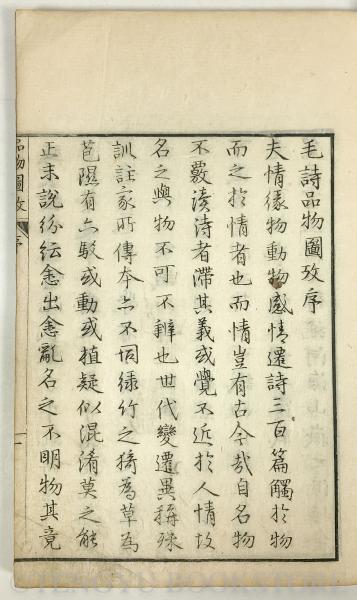 毛詩品物圖攷序
夫情緣物動物感情遷詩三百篇觸於物
而之於情者也而情豈有古今哉自名物
不覈讀詩者滯其義或覺不近於人情故
名之與物不可不辨也世代變遷異稱殊
訓註家所傳本亦不同綠竹之猗為草為
芭隰有六駁或動或植疑似混淆莫之能
正末說紛紜愈出愈亂名之不明物其竟
品物圖攷
序